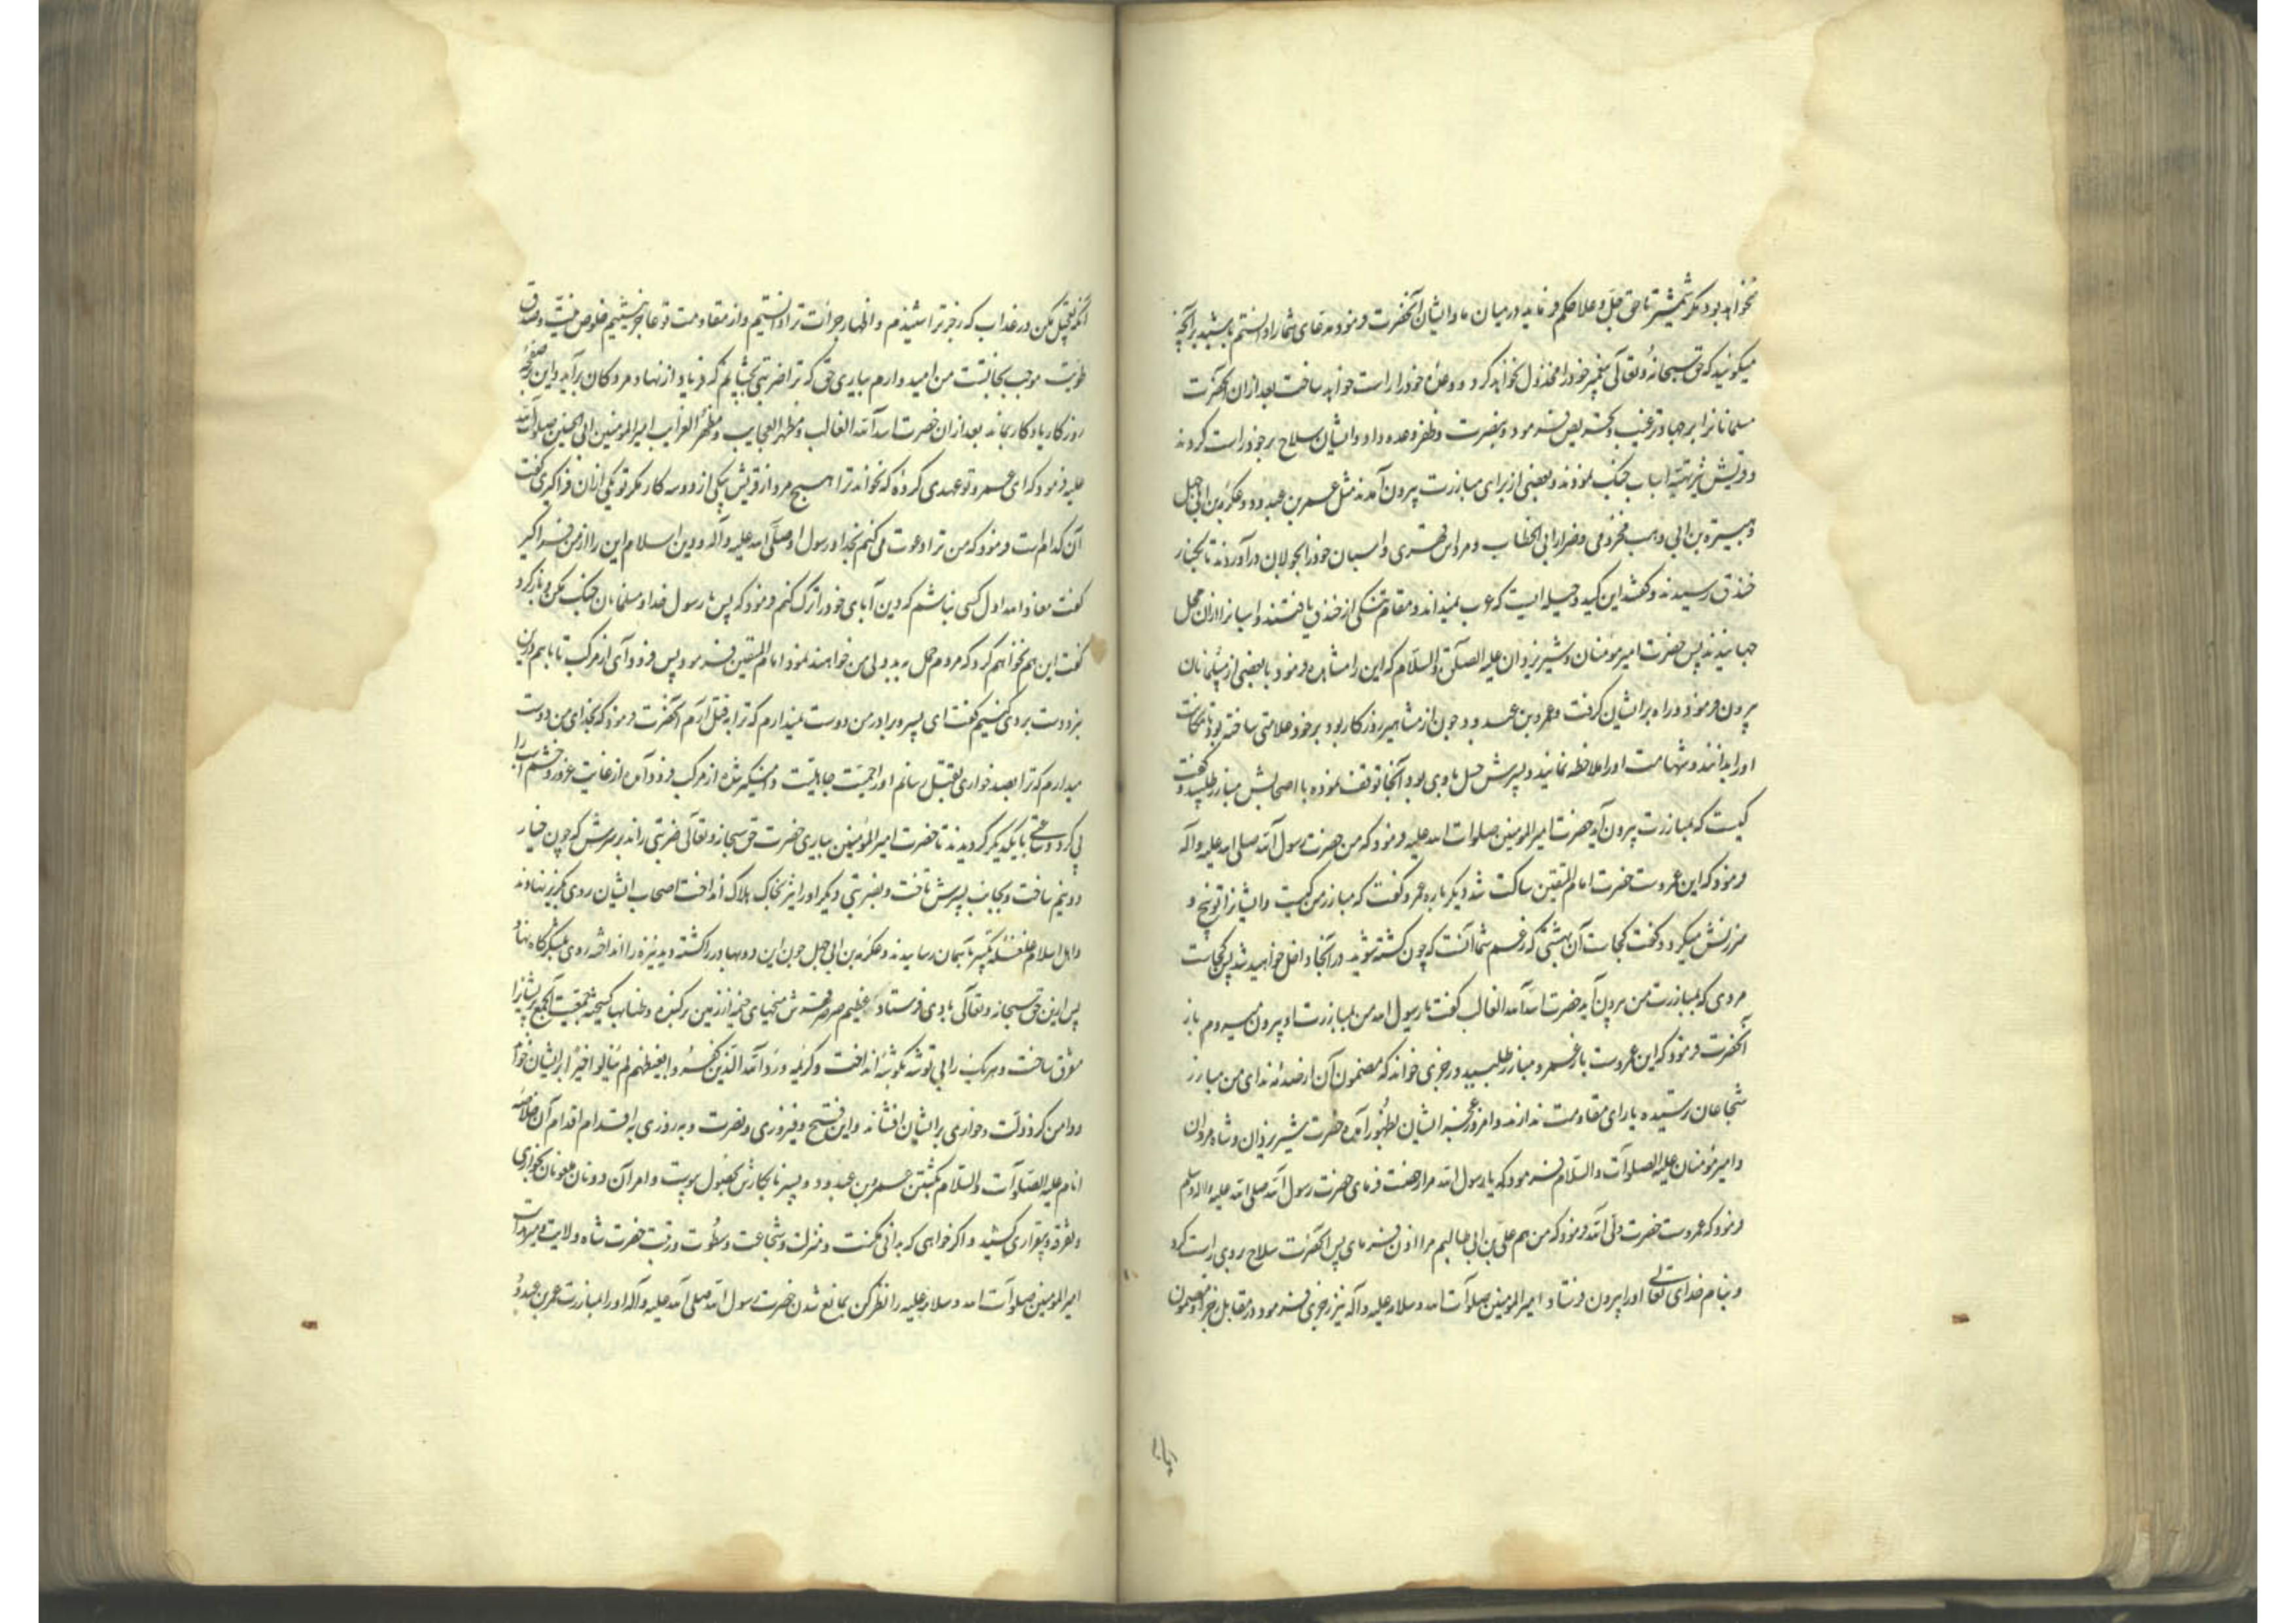 نخواهد بود مگر شمشیر تا حق جل و علا حکم فرماید در میان ما و ایشان آنحضرت فرمود مدعای شما را دانستم باشید بر آنچه
میگوئید که حق سبحانه و تعالی پیغمبر خود را مخذول نخواهد کرد و وعدهٔ خود را راست خواهد ساخت بعد از ان آنحضرت
مسلمانانرا بر جهاد ترغیب و تحریص فرمود و بنصرت و ظفر وعده داد و ایشان سلاح بر خود راست کردند
و قریش نیز تهیهٔ اسباب جنگ نمودند و بعضی از برای مبارزت بیرون آمدند مثل عمرو بن عبدود و عکرمه بن ابی جهل
و هبیره بن ابی وهب مخزومی و ضرار ابی الخطاب و مرداس فهری و اسبان خود را بجولان درآوردند تا بکنار
خندق رسیدند و گفتند این کید و حیله ایست که عرب نمیداند و مقام تنگی از خندق یافتند و اسبانرا از ان محل
جهانیدند پس حضرت امیر مؤمنان و شیر یزدان علیه الصلوة والسلام که این را مشاهده فرمود با بعضی از مسلمانان
بیرون فرمود و راه بر ایشان گرفت و عمرو بن عبدود چون از مشاهیر روزگار بود بر خود علامتی ساخته بود تا مکانت
او را بدانند و شهامت او را ملاحظه نمایند و پسرش حسل با وی بود آنجا توقف نموده با اصحابش مبارز طلبید و گفت
کیست که بمبارزت بیرون آید حضرت امیر المومنین صلوات الله علیه فرمود که من حضرت رسول الله صلی الله علیه و آله
فرمود که این عمروست حضرت امام المتقین ساکت شد دیگر باره عمرو گفت که مبارز من کیست و ایشانرا توبیخ و
سرزنش میکرد و گفت کجاست آن بهشتی که زعم شما آنست که چون کشته شوید در آنجا داخل خواهید شد پس کجاست
مردی که بمبارزت من بیرون آید حضرت اسد الله الغالب گفت یا رسول الله من بمبارزت او بیرون میروم باز
آنحضرت فرمود که این عمروست باز عمرو مبارز طلبید و رجزی خواند که مضمون آن ندای من مبارز
شجاعان رسیده یارای مقاومت ندارند و امروز عجز ایشان بظهور آمده حضرت شیر یزدان و شاه مردان
و امیر مؤمنان علیه الصلوات والسلام فرمود که یا رسول الله مرا رخصت فرمای حضرت رسول الله صلی الله علیه و اله وسلم
فرمود که عمروست حضرت ولی الله فرمود که من هم علی بن ابی طالبم مرا اذن فرمای پس آنحضرت سلاح بر وی راست کرد
و بنام خدای تعالی او را بیرون فرستاد امیر المومنین صلوات الله و سلامه علیه و آله نیز رجزی فرمود در مقابل رجز او مضمون
آنکه تعجیل مکن در عذاب که رجز ترا شنیدم و اظهار جرأت ترا دانستیم و از مقاومت تو عاجز نیستیم خلوص نیت و صدق
طویت موجب نجاتست من امیدوارم بیاری حق که ترا ضربتی بچشانم که فریاد از نهاد مردگان برآید و این بر صفحهٔ
روزگار یادگار بماند بعد از ان حضرت اسد الله الغالب و مظهر العجایب و مظهر الغرایب امیر المومنین ابی الحسنین صلوات الله
علیه فرمود که ای عمرو تو عهدی کردهٔ که نخواند ترا هیچ مرد از قریش بیکی از دو سه کار مگر تو یکی از ان فرا گیری گفت
آن کدام است فرمود که من ترا دعوت می کنم بخدا و رسول او صلی الله علیه و آله و دین اسلام این را از من فرا گیر
گفت معاذ الله اول کسی نباشم که دین آبای خود را ترک کنم فرمود که پس با رسول خدا و مسلمانان جنگ مکن و بازگرد
گفت این هم نخواهم کرد که مردم حمل به بد دلی من خواهند نمود امام المتقین فرمود پس فرود آی از مرکب تا با هم درین
نزودت بردی کنیم گفت ای پسر برادر من دوست نمیدارم که ترا به قتل آرم آنحضرت فرمود که بخدای من دوست
میدارم که ترا بصد خواری بقتل رسانم او را حمیت جاهلیت دامنگیر شده از مرکب فرود آمد و از غایت غرور و خشم اسب را
پی کرد و ساعتی با یکدیگر گردیدند تا حضرت امیر المؤمنین بیاری حضرت حق سبحانه و تعالی ضربتی راند بر سرش که چون خیار
دو نیم ساخت و بجانب پسرش تافت و بضربتی دیگر او را نیز بخاک هلاک انداخت اصحاب ایشان روی بگریز نهادند
و اهل اسلام غلغلهٔ تکبیر باسمان رسانیدند و عکرمه بن ابی جهل چون این دو بهادر را کشته دید نیزه را انداخته روی بلشکرگاه نهاد
پس ازین حق سبحانه و تعالی بادی فرستاد عظیم صرصر میخهای خیمه از زمین برکنده و طنابها گسیخته جمعیت آنجمع پریشانرا
متفرق ساخت و هر یک را بی توشه بگوشهٔ انداخت و کریمه و رد الله الذین کفروا بغیظهم لم ینالوا خیرا بر ایشان خواند
و دامن گرد ذلت و خواری بر ایشان افشاند و این فتح و فیروزی و نصرت و بهروزی به اقدام آن خلاصهٔ
انام علیه الصلوات والسلام بکشتن عمرو بن عبدود و پسر نابکارش بحصول پیوست و امر آن دونان ملعونان بخواری
و تفرقه و بیقراری کشید و اگر خواهی که بدانی مکنت و منزلت و شجاعت و سطوت و رتبت حضرت شاه ولایت و میر
امیر المومنین صلوات الله و سلامه علیه را نظر کن بمانع شدن حضرت رسول الله صلی الله علیه و آله او را بمبارزت عمرو بن عبدود